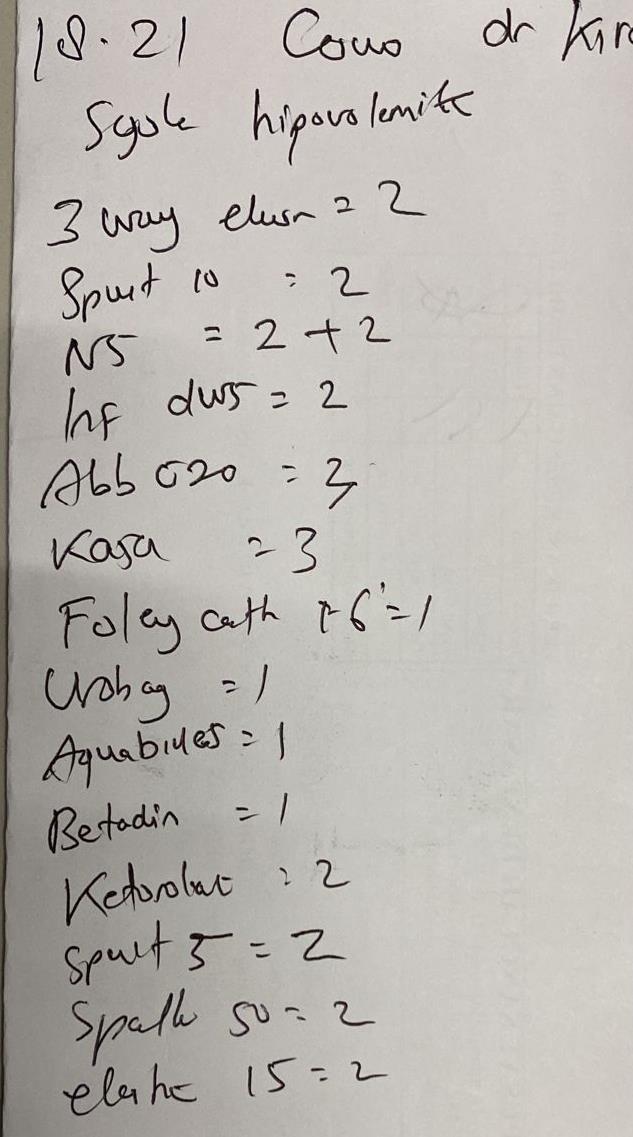 18.21 Cowo dr Kir
Syok hipovolemik
3 way elusn = 2
Spuit 10 = 2
NS = 2 + 2
Inf dws = 2
Abb G20 = 3
Kasa = 3
Foley cath 16 = 1
Urobag = 1
Aquabides = 1
Betadin = 1
Ketorolac : 2
Spuit 5 = 2
Spalk 50 = 2
elastic 15 = 2